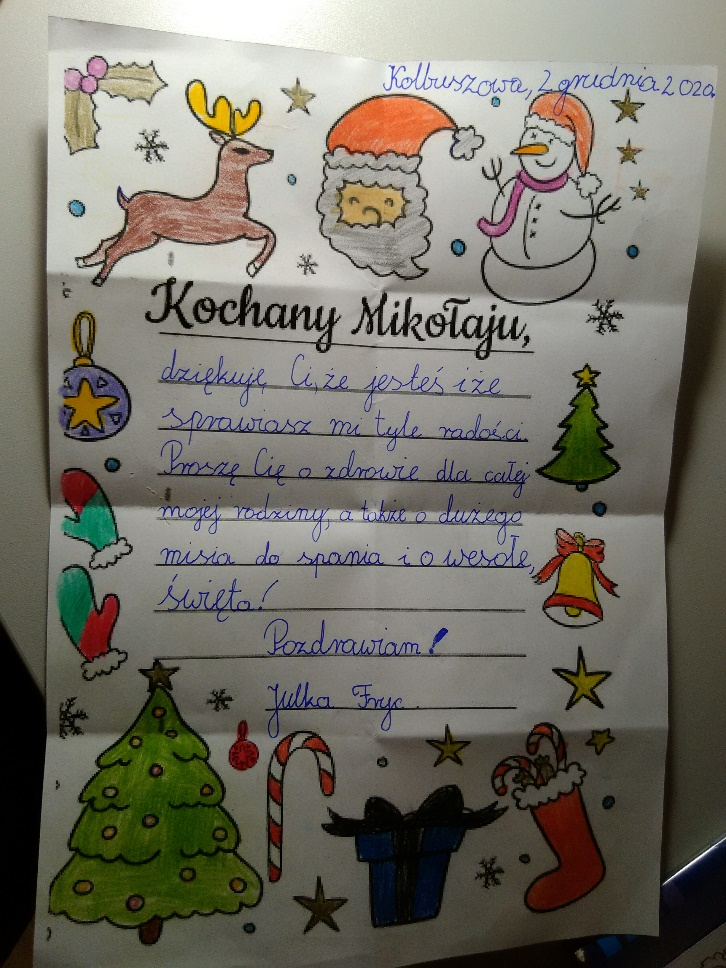 Kolbuszowa, 2 grudnia 2020
Kochany Mikołaju,
dziękuję Ci, że jesteś i że
sprawiasz mi tyle radości.
Proszę Cię o zdrowie dla całej
mojej rodziny, a także o dużego
misia do spania i o wesołe,
święta!
Pozdrawiam!
Julka Fryc